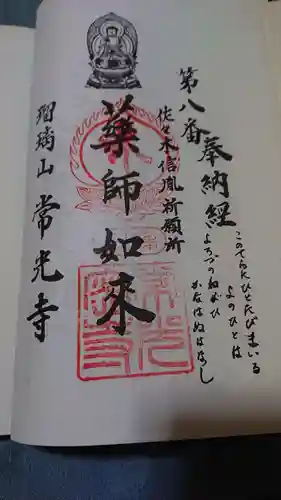 第八番
奉納経
このてらにひとたびまいる
よのひとは
よろづのねがひ
かなはぬはなし
佐々木信胤祈願所
薬師如来
瑠璃山
常光寺